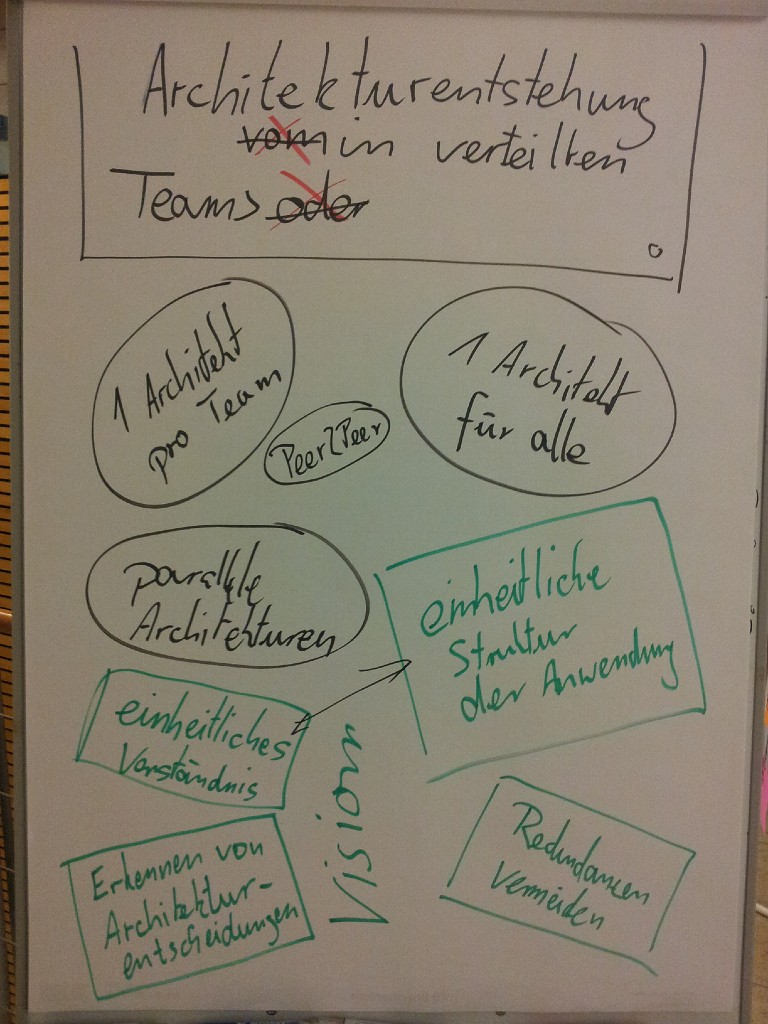 Architekturentstehung
vom in verteilten
Teams oder
1 Architekt
pro Team
Peer2Peer
1 Architekt
für alle
parallele
Architekturen
einheitliche
Struktur
der Anwendung
einheitliches
Verständnis
Vision
Erkennen von
Architektur-
entscheidungen
Redundanzen
vermeiden